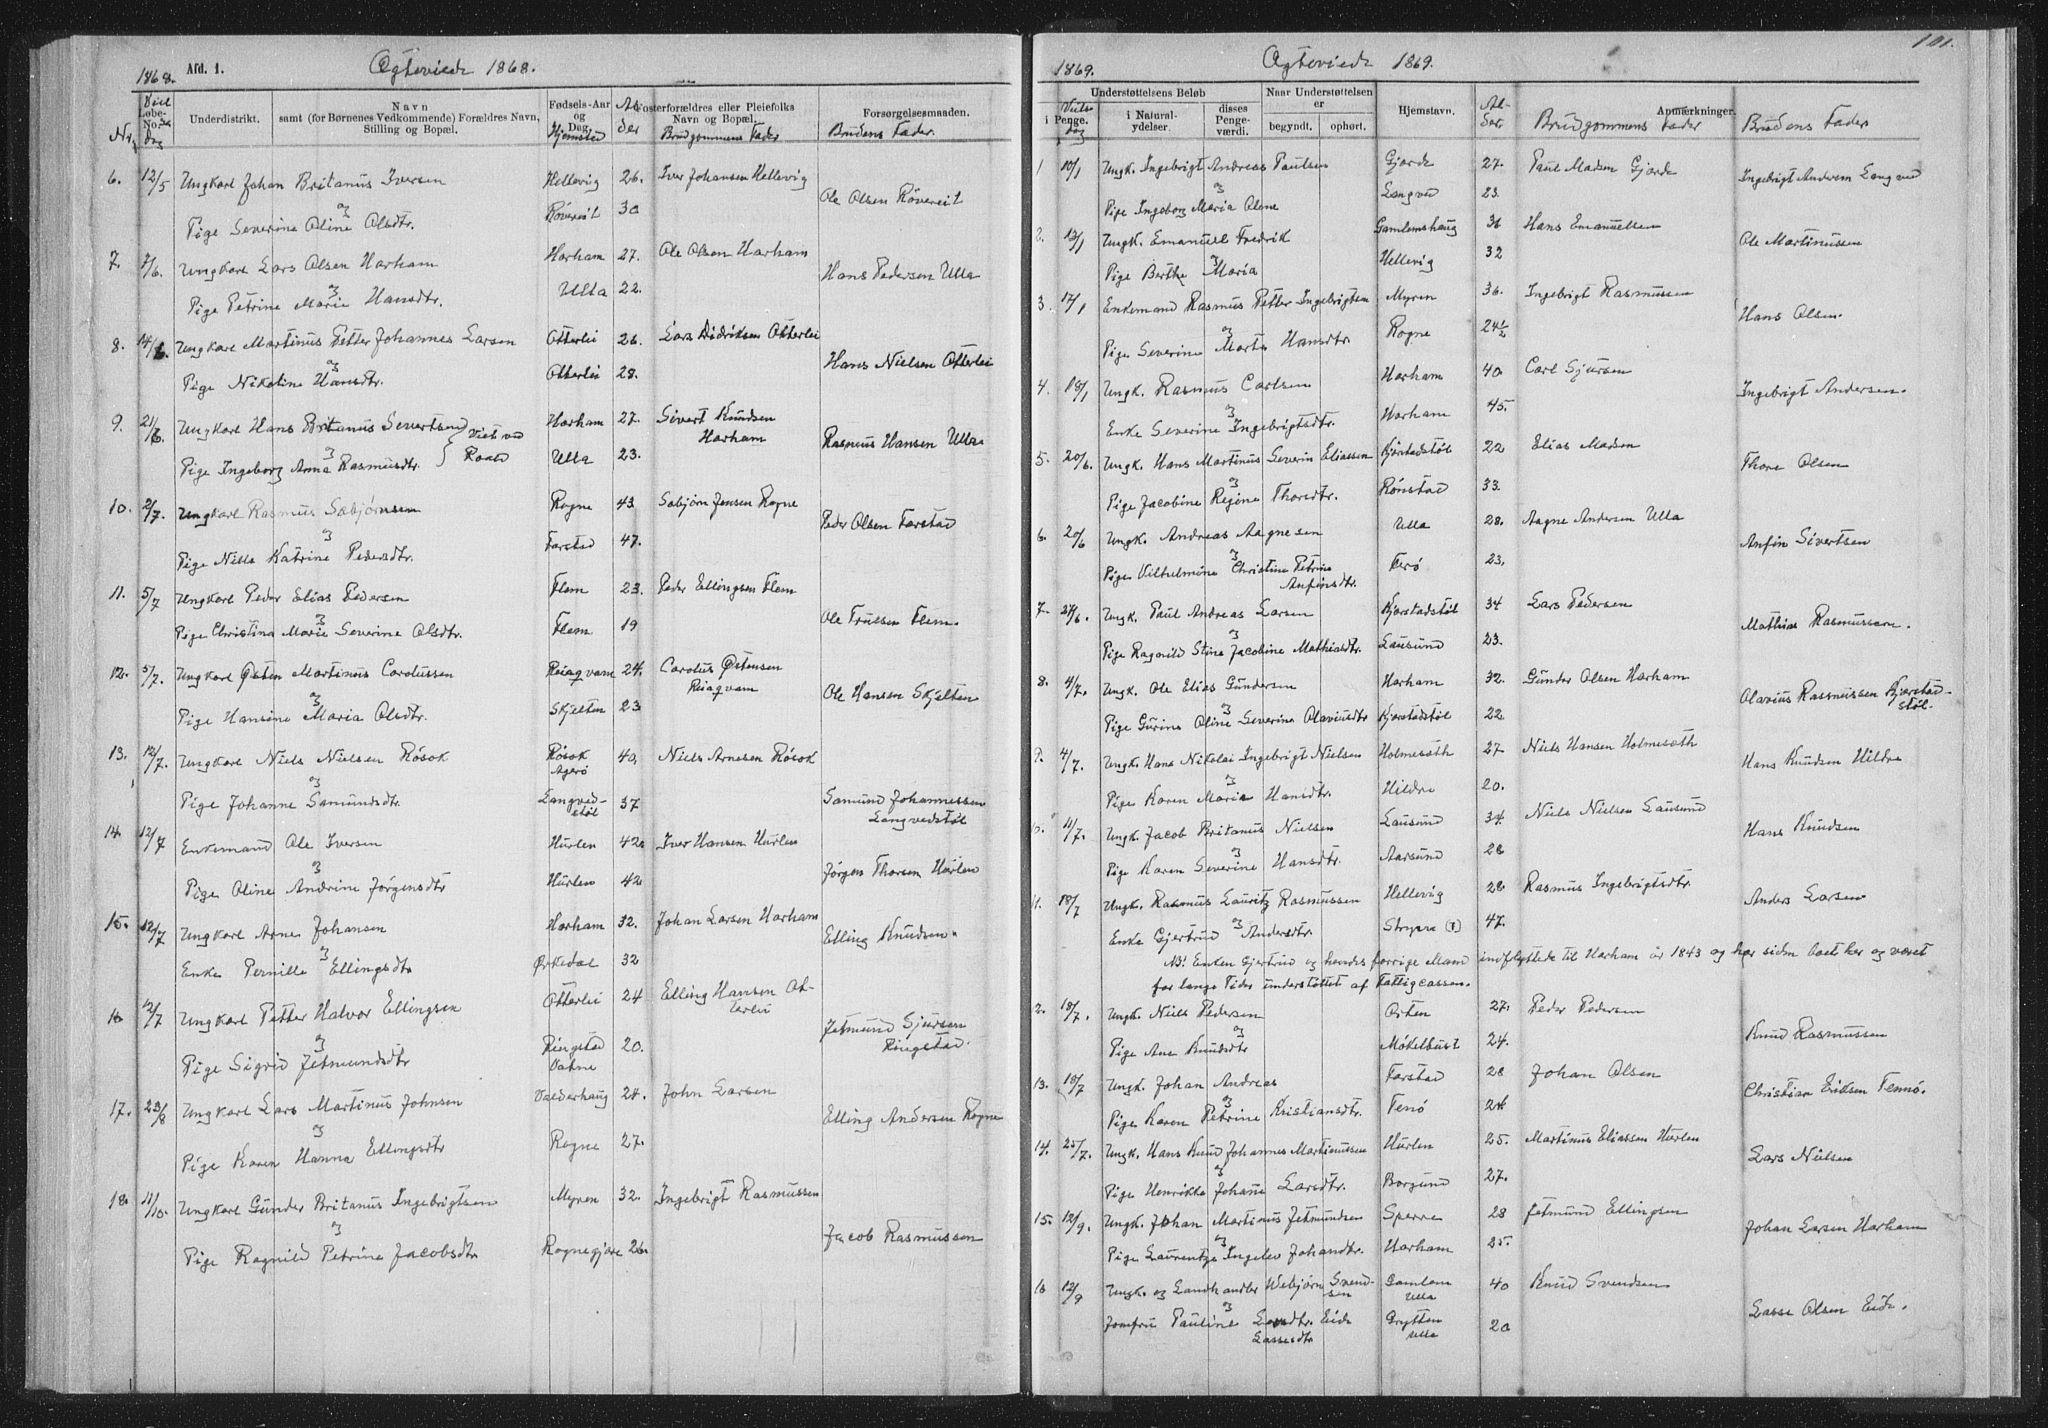 1868. Afd. 1. Ægteviede 1868.
Nr. Viel Løbe-No. se dag Underdistrikt. Navn samt (for Børnenes Vedkommende) Forældres Navn, Stilling og Bopæl. Fødsels-Aar og Dag. Hjemsted Al der Fosterforældres eller Pleiefolks Navn og Bopæl. Brudgommens Fader Forsørgelsesmaaden. Brudens Fader.
6. 12/5 Ungkarl Johan Britanus Iversen Hellevig 26. Iver Johansen Hellevig
og
Pige Severine Oline Olsdtr. Røvereit 30 Ole Olsen Røvereit
7. 7/6. Ungkarl Lars Olsen Harham Harham 27. Ole Olsen Harham
og
Pige Petrine Marie Hansdtr. Ulla 22. Hans Pedersen Ulla
8. 14/6. Ungkarl Martinus Petter Johannes Larsen Otterlei 26. Lars Didriksen Otterlei
og
Pige Nikoline Hansdtr. Otterlei 28. Hans Nielsen Otterlei
9. 21/6. Ungkarl Hans Britanus Severtsen } Viet ved Harham 27. Sivert Knudsen
Harham
og
Pige Ingeborg Anna Rasmusdtr. } Roald Ulla 23. Rasmus Hansen Ulla
10. 2/7. Ungkarl Rasmus Sabjørnsen Rogne 43 Sabjørn Jensen Rogne
og
Pige Nille Katrine Pedersdtr. Farstad 47. Peder Olsen Farstad
11. 5/7 Ungkarl Peder Elias Pedersen Flem 23. Peder Ellingsen Flem
og
Pige Christina Marie Severine Olsdtr. Flem 19 Ole Truelsen Flem.
12. 5/7. Ungkarl Østen Martinus Carolussen Reiaqvam 24. Carolus Østensen
Reiaqvam
og
Pige Hansine Maria Olsdtr. Skjelten 23 Ole Hansen Skjelten
13. 12/7. Ungkarl Niels Nielsen Røsok Røsok 40, Niels Arnesen Røsok
Agerø
og
Pige Johanne Samundsdtr. Langved- 37 Samund Johannessen
støl Langvedstøl
14. 12/7 Enkemand Ole Iversen Hurlen 42. Iver Hansen Hurlen
og
Pige Oline Andrine Jørgensdtr Hurlen 42 Jørgen Thorsen Hurlen
15. 12/7 Ungkarl Arne Johansen Harham 32. Johan Larsen Harham
og
Enke Pernille Ellingsdtr Ørkedal 32 Elling Knudsen.
16 12/7 Ungkarl Petter Halvor Ellingsen Otterlei 24 Elling Hansen Ot-
terlei
og
Pige Sigrid Jetmundsdtr Ringstad 20. Jetmund Sjursen
Vatne Ringstad.
17. 23/8 Ungkarl Lars Martinus Johnsen Valderhaug 24. John Larsen
og
Pige Karen Hanna Ellingsdtr Rogne 27. Elling Andersen Rogne
18. 11/10. Ungkarl Gunder Britanus Ingebrigtsen Myren 32. Ingebrigt Rasmussen
og
Pige Ragnild Petrine Jacobsdtr Rognegjære 26. Jacob Rasmussen
101.
1869. Ægteviede 1869.
Understøttelsens Beløb Naar Understøttelsen er Hjemstavn. Al- der. Anmærkninger.
i Penge. Viels- dag i Natural-ydelser. disses Penge-værdi. begyndt. ophørt. Brudgommens Fader Brudens Fader
1 10/1 Ungk. Ingebrigt Andreas Paulsen Gjørde 27. Paul Madsen Gjørde
og
Pige Ingeborg Maria Olene Langved 23. Ingebrigt Andersen Langved
2. 13/1 Ungk. Emanuel Fredrik Gamlemshaug 36 Hans Emanuelsen
og
Pige Berthe Maria Hellevig 32 Ole Martinussen
3. 17/1 Enkemand Rasmus Petter Ingebrigtsen Myren 36. Ingebrigt Rasmussen
og
Pige Severine Marta Hansdtr. Rogne 24½ Hans Olsen.
4. 18/1 Ungk. Rasmus Carlsen Harham 40 Carl Sjursen
og
Enke Severine Ingebrigtsdtr. Harham 45. Ingebrigt Andersen.
5. 20/6. Ungk. Hans Martinus Severin Eliassen Kjørstadstøl 22 Elias Madsen
og
Pige Jacobine Regine Thorsdtr. Rønstad 33. Thore Olsen
6. 20/6 Ungk. Andreas Aagnesen Ulla 28. Aagne Andersen Ulla
og
Pige Vilhelmine Christine Petrine Ferø 23. Anfin Sivertsen
Anfinsdtr.
7. 27/6. Ungk. Paul Andreas Larsen Kjørstadstøl 34 Lars Pedersen
og
Pige Ragnild Stina Jacobine Mathiasdtr. Lausund 23. Mathias Rasmussen.
8. 4/7. Ungk. Ole Elias Gundersen Harham 32. Gunder Olsen Harham
og
Pige Gurine Oline Severine Olaviusdtr Kjørstadstøl 22 Olavius Rasmussen Kjørstad-
støl.
9. 4/7. Ungk. Hans Nikolai Ingebrigt Nielsen Holmesæth 27 Niels Hansen Holmesæth
og
Pige Karen Maria Hansdtr. Hildre 20. Hans Knudsen Hildre
11/7. Ungk. Jacob Britanus Nielsen Lausund 34. Niels Nielsen Lausund
og
Pige Karen Severine Hansdtr. Aarsund 28 Hans Knudsen
11. 18/7 Ungk. Rasmus Lauritz Rasmussen Hellevig 28 Rasmus Ingebrigtsdtr.
og
Enke Gjertrud Andersdtr. Strype (?) 47. Anders Larsen
NB! Enken Gjertrud og hendes forrige Mand indflyttede til Harham år 1843 og har siden boet her og været
for lange Tider understøttet af Fattigcassen.
2. 18/7. Ungk. Niels Pedersen Orten 27. Peder Pedersen
og
Pige Ane Knudsdtr Møkelbust 24. Knud Rasmussen
13. 18/7 Ungk. Johan Andreas Farstad 28 Johan Olsen
og
Pige Karen Petrine Kristiansdtr. Fenø 24 Christian Eriksen Fennø.
14. 25/7. Ungk. Hans Knud Johannes Martinussen Hurlen 25. Martinus Eliassen Hurlen
og
Pige Henrikke Johane Larsdtr. Borgund 27. Lars Nielsen
15. 12/9. Ungk. Johan Martinus Jetmundsen Sperre 28 Jetmund Ellingsen
og
Pige Laurentze Ingelev Johandtr. Harham 25. Johan Larsen Harham
16 12/9 Ungk. og Landhandler Webjørn Svend- Gamlem 40 Knud Svendsen
sen Ulla
og
Jomfru Pauline Larsdtr. Eide Grytten 20 Lasse Olsen Eide.
Lassesdtr Ulla